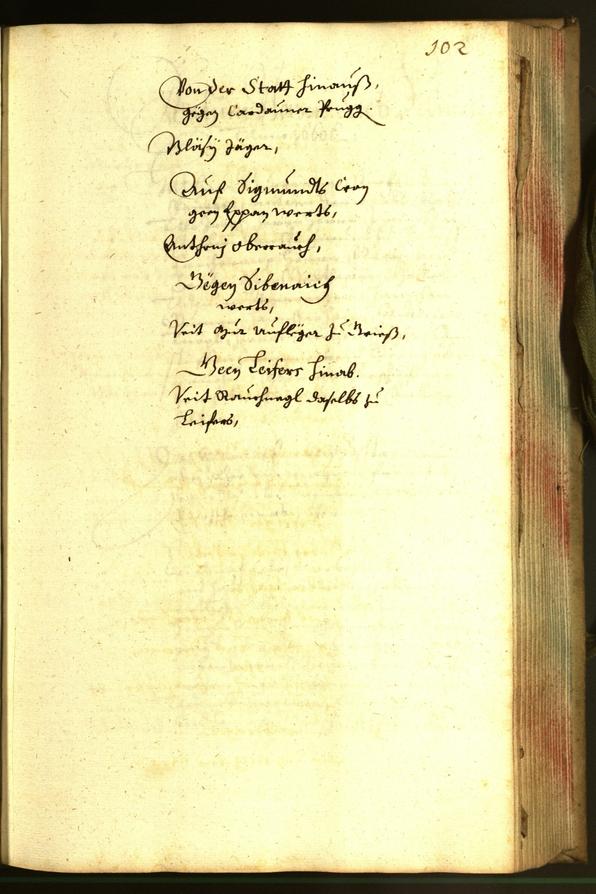 102
Von der Statt hinauß,
gegen Cardauner Prugg.
Bläsÿ Jäger,
Auf Sigmundts Cron
geen Eppan werts,
Anthonj Oberrauch,
Gegen Sibenaich
werts,
Veit aufleger zu Grieß,
Geen Leifers hinab.
Veit Rauchnagl daselbs zu
Leifers,